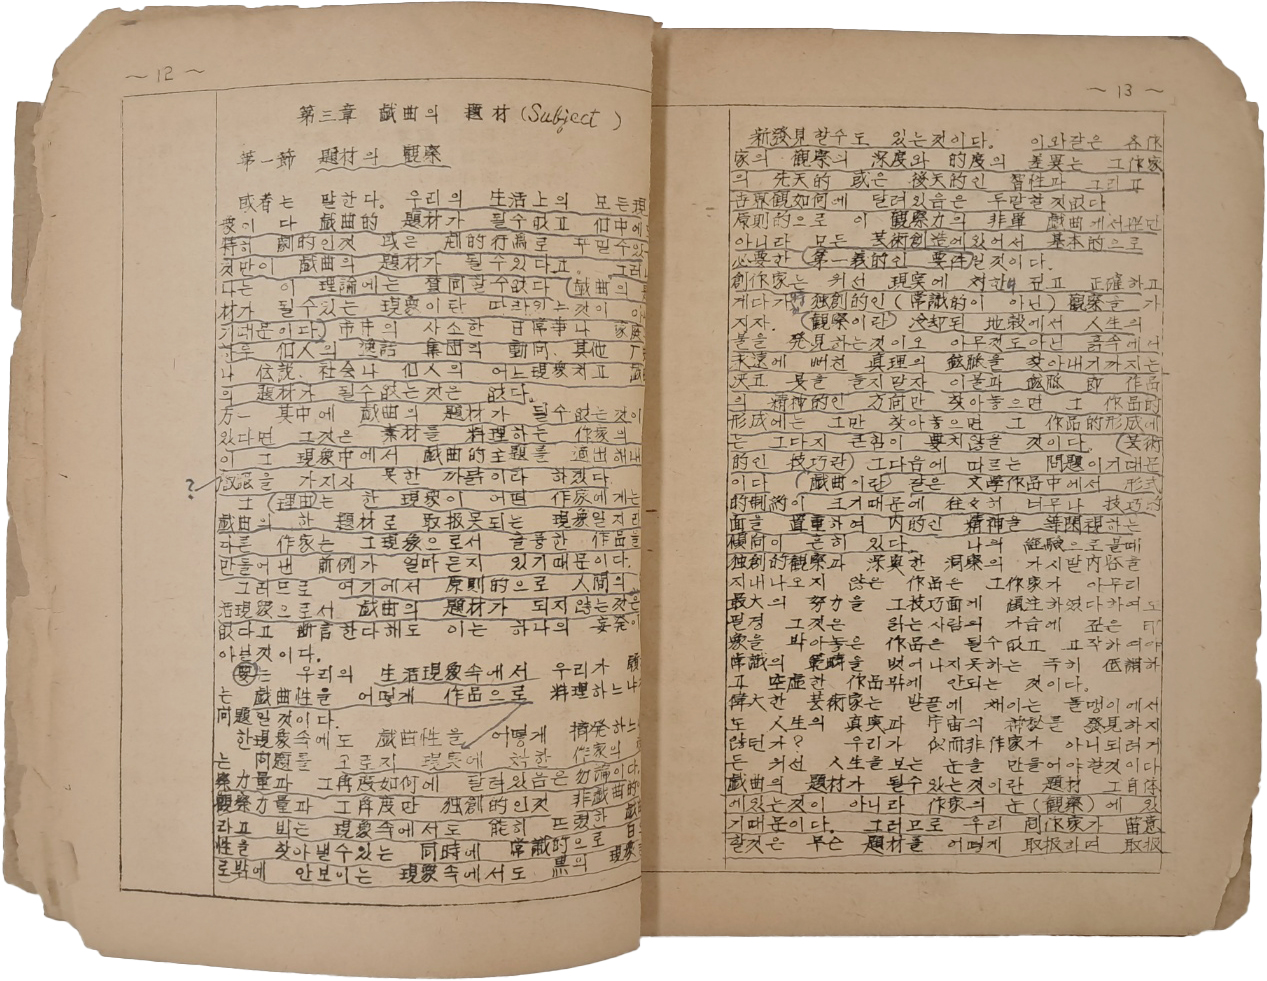 ~ 12 ~
第三章 戯曲의 題材 (Subject)
第一節 題材의 観察
或者는 말한다. 우리의 生活上의 모든現
象이 다 戯曲的 題材가 될수없고 個中에
特히 劇的인것 或은 劇的行為로 꾸밀수있
것만이 戯曲의 題材가 될수있다고. 그러나
나는 이 理論에는 賛同할수없다 (戯曲의 題
材가 될수있는 現象이란 따라가는것이 아니
기때문이다) 市井의 사소한 日常事나 家庭
個人의 集団의 動向. 其他
나 伝説. 社会나 個人의 어느現象치고 戯
의 題材가 될수없는것은 없다.
万一 其中에 戯曲의 題材가 될수없는것이
있다면 그것은 素材를 料理하는 作家의
이 그 現象中에서 戯曲的主題를 適出해내
?
을 가지자 못한 까닭이라 하겠다.
그 (理由)는 한 現象이 어떤 作家에게는
戯曲의 한 題材로 取扱못되는 現象일지라
다른 作家는 그現象으로서 을륭한 作品을
만들어낸 前例가 얼마든지 있기때문이다.
그러므로 여기에서 原則的으로 人間의
活現象으로서 戯曲의 題材가 되지않는것은
없다고 断言한다해도 이는 하나의 妄発이
아닐것이다.
要는 우리의 生活現象속에서 우리가
는 戯曲性을 어떻게 作品으로 料理하느냐
問題일것이다.
한現象속에도 戯曲性을 어떻게 摘発하느
는 問題를 오로지 現実에 対한 作家의
察力量과 그再度如何에 달려있음은 勿論이다.
観察力量과 그再度만 独創的인것 非戯曲的
라고 뵈는 現象속에서도 能히 뜨렸한 戯
性을 찾아낼수있는 同時에 常識的으로 日
로밖에 안보이는 現象속에서도 黒의 現象
~ 13 ~
新發見할수도 있는것이다. 이와같은 各作
家의 観察의 深度와 的度의 差異는 그作家
의 先天的 或은 後天的인 智性과 그리고
世界観如何에 달려있음은 두말할것없다
原則的으로 이 観察力의 非単 戯曲에서뿐만
아니라 모든 芸術創造에있어서 基本的으로
必要한 (第一義的인 要件)일것이다.
創作家는 위선 現実에 対해 깊고 正確하고
게다가 独創的인 (常識的이 아닌) 観察을 가
지자. (観察이란) 冷却된 地殻에서 人生의
불을 発見하는것이오 아무것도아닌 흙속에서
永遠에 뻐친 真理의 鉱脈을 찾아내기까지는
決코 붓을 들지말자 이불과 鉱脈 即 作品
의 精神的인 方向만 찾아놓으면 그 作品的
形成에는 그만 찾아놓으면 그 作品的形成에
는 그다지 큰힘이 要치않을 것이다. (芸術
的인 技巧란) 그다음에 따르는 問題이기때문
이다 (戯曲이란) 같은 文學作品中에서 形式
的制約이 크기때문에 往々히 너무나 技巧的
面을 置重하여 内的인 精神을 等閑視하는
傾向이 흔히 있다. 나의 経験으로볼때
独創的観察과 深奥한 洞察의 가시밭内容을
지내나오지 않은 作品은 그作家가 아무리
最大의 努力을 그技巧面에 傾注하였다하여도
필경 그것은 읽는사람의 가슴에 깊은 印
象을 박아놓은 作品은 될수없고 고작하여야
常識의 範疇을 벗어나지못하는 극히 低調하
고 空虚한 作品밖에 안되는 것이다.
偉大한 芸術家는 발끝에 채이는 돌맹이에서
도 人生의 真実과 宇宙의 神秘를 發見하지
않던가? 우리가 似而非作家가 아니되려게
든 위선 人生을보는 눈을 만들어야할것이다
戯曲의 題材가 될수있는것이란 題材 그自体
에있는것이 아니라 作家의 눈(観察)에 있
기때문이다. 그러므로 우리 同作家가 留意
할것은 무슨 題材를 어떻게 取扱하며 取扱